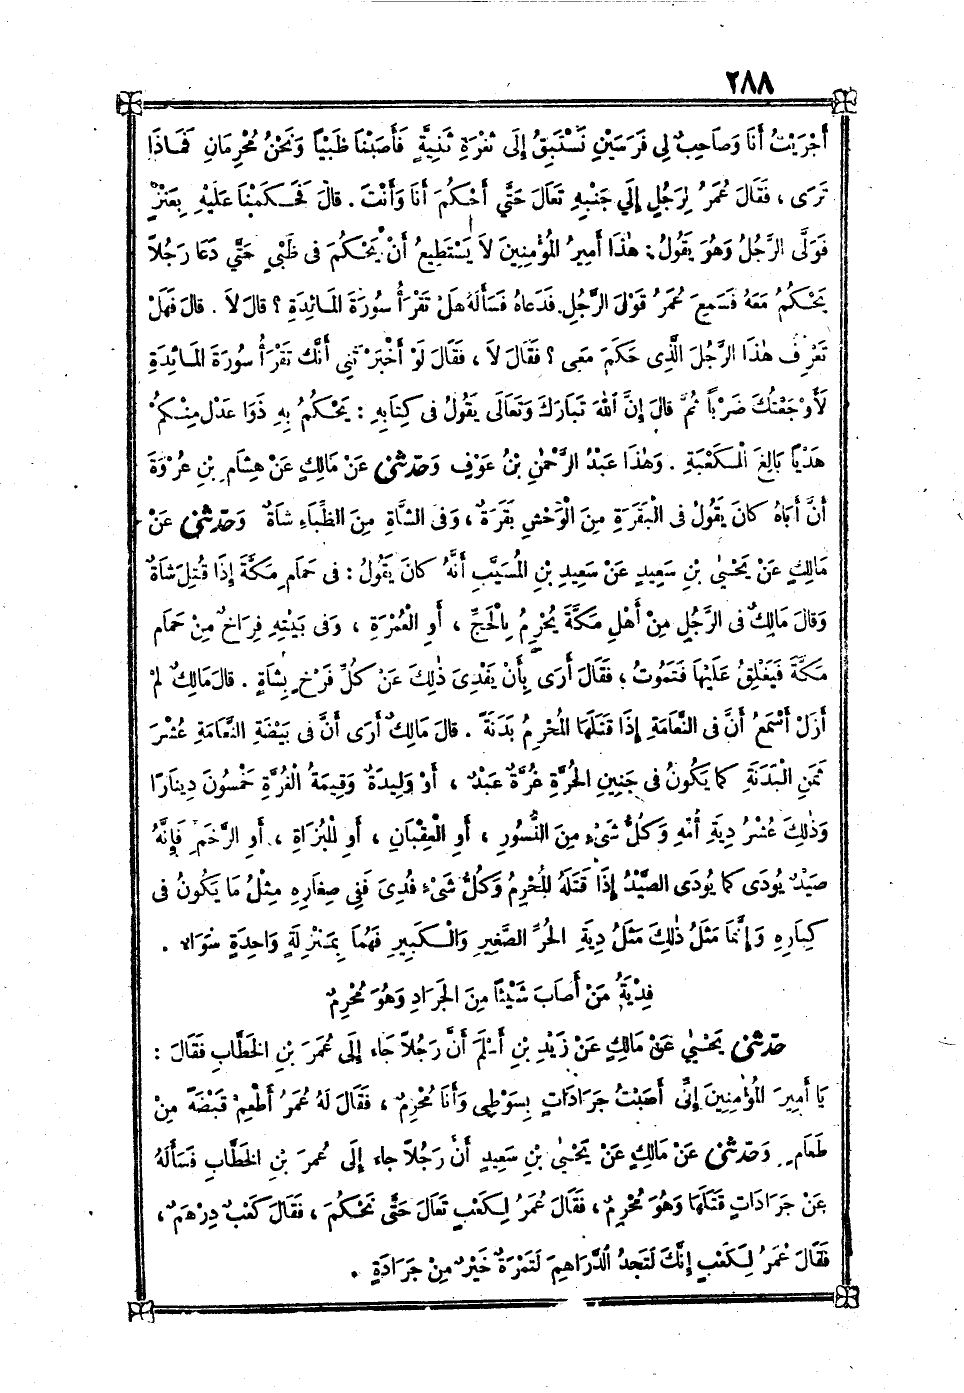 ٢٨٨
أَجْرَيْتُ أَنَا وَصَاحِبٌ لِى فَرَسَيْنِ نَسْتَبِقُ إِلَى ثُغْرَةِ ثَنِيَّةٍ فَأَصَبْنَا ظَبْيًا وَنَحْنُ مُحْرِمَانِ فَمَاذَا
تَرَى ، فَقَالَ عُمَرُ لِرَجُلٍ إِلَى جَنْبِهِ تَعَالَ حَتَّى أَحْكُمَ أَنَا وَأَنْتَ . قَالَ فَحَكَمْنَا عَلَيْهِ بِعَنْزٍ
فَوَلَّى الرَّجُلُ وَهُوَ يَقُولُ : هٰذَا أَمِيرُ الْمُؤْمِنِينَ لَا يَسْتَطِيعُ أَنْ يَحْكُمَ فِى ظَبْيٍ حَتَّى دَعَا رَجُلاً
يَحْكُمُ مَعَهُ فَسَمِعَ عُمَرُ قَوْلَ الرَّجُلِ فَدَعَاهُ فَسَأَلَهُ هَلْ تَقْرَأُ سُورَةَ الْمَائِدَةِ ؟ قَالَ لَا . قَالَ فَهَلْ
تَعْرِفُ هٰذَا الرَّجُلَ الَّذِى حَكَمَ مَعِى ؟ فَقَالَ لَا ، فَقَالَ لَوْ أَخْبَرْتَنِى أَنَّكَ تَقْرَأُ سُورَةَ الْمَائِدَةِ
لَأَوْجَعْتُكَ ضَرْباً ثُمَّ قَالَ إِنَّ اللهَ تَبَارَكَ وَتَعَالَى يَقُولُ فِى كِتَابِهِ : يَحْكُمُ بِهِ ذَوَا عَدْلٍ مِنْكُمْ
هَدْيًا بَالِغَ الْكَعْبَةِ . وَهٰذَا عَبْدُ الرَّحْمٰنِ بْنُ عَوْفٍ وَحَدَّثَنِى عَنْ مَالِكٍ عَنْ هِشَامِ بْنِ عُرْوَةَ
أَنَّ أَبَاهُ كَانَ يَقُولُ فِى الْبَقَرَةِ مِنَ الْوَحْشِ بَقَرَةٌ ، وَفِى الشَّاةِ مِنَ الظِّبَاءِ شَاةٌ وَحَدَّثَنِى عَنْ
مَالِكٍ عَنْ يَحْيَى بْنِ سَعِيدٍ عَنْ سَعِيدِ بْنِ الْمُسَيَّبِ أَنَّهُ كَانَ يَقُولُ : فِى حَمَامِ مَكَّةَ إِذَا قُتِلَ شَاةٌ
وَقَالَ مَالِكٌ فِى الرَّجُلِ مِنْ أَهْلِ مَكَّةَ يُحْرِمُ بِالْحَجِّ ، أَوِ الْعُمْرَةِ ، وَفِى بَيْتِهِ فِرَاخٌ مِنْ حَمَامِ
مَكَّةَ فَيَغْلِقُ عَلَيْهَا فَتَمُوتُ ؛ فَقَالَ أَرَى بِأَنْ يَفْدِىَ ذٰلِكَ عَنْ كُلِّ فَرْخٍ بِشَاةٍ . قَالَ مَالِكٌ لَمْ
أَزَلْ أَسْمَعُ أَنَّ فِى النَّعَامَةِ إِذَا قَتَلَهَا الْمُحْرِمُ بَدَنَةً . قَالَ مَالِكٌ أَرَى أَنَّ فِى بَيْضَةِ النَّعَامَةِ عُشْرَ
ثَمَنِ الْبَدَنَةِ كَمَا يَكُونُ فِى جَنِينِ الْحُرَّةِ غُرَّةٌ عَبْدٌ ، أَوْ وَلِيدَةٌ وَقِيمَةُ الْغُرَّةِ خَمْسُونَ دِينَارًا
وَذٰلِكَ عُشْرُ دِيَةِ أُمِّهِ وَكُلُّ شَىْءٍ مِنَ النُّسُورِ ، أَوِ الْعِقْبَانِ ، أَوِ الْبُزَاةِ ، أَوِ الرَّخَمِ فَإِنَّهُ
صَيْدٌ يُودَى كَمَا يُودَى الصَّيْدُ إِذَا قَتَلَهُ الْمُحْرِمُ وَكُلُّ شَىْءٍ فُدِىَ فَفِى صِغَارِهِ مِثْلُ مَا يَكُونُ فِى
كِبَارِهِ وَإِنَّمَا مَثَلُ ذٰلِكَ مَثَلُ دِيَةِ الْحُرِّ الصَّغِيرِ وَالْكَبِيرِ فَهُمَا بِمَنْزِلَةٍ وَاحِدَةٍ سَوَاءٌ .
فِدْيَةُ مَنْ أَصَابَ شَيْئًا مِنَ الْجَرَادِ وَهُوَ مُحْرِمٌ
حَدَّثَنِى يَحْيَى عَنْ مَالِكٍ عَنْ زَيْدِ بْنِ أَسْلَمَ أَنَّ رَجُلاً جَاءَ إِلَى عُمَرَ بْنِ الْخَطَّابِ فَقَالَ :
يَا أَمِيرَ الْمُؤْمِنِينَ إِنِّى أَصَبْتُ جَرَادَاتٍ بِسَوْطِى وَأَنَا مُحْرِمٌ ، فَقَالَ لَهُ عُمَرُ أَطْعِمْ قَبْضَةً مِنْ
طَعَامٍ . وَحَدَّثَنِى عَنْ مَالِكٍ عَنْ يَحْيَى بْنِ سَعِيدٍ أَنَّ رَجُلاً جَاءَ إِلَى عُمَرَ بْنِ الْخَطَّابِ فَسَأَلَهُ
عَنْ جَرَادَاتٍ قَتَلَهَا وَهُوَ مُحْرِمٌ ، فَقَالَ عُمَرُ لِكَعْبٍ تَعَالَ حَتَّى نَحْكُمَ ، فَقَالَ كَعْبٌ دِرْهَمٌ ،
فَقَالَ عُمَرُ لِكَعْبٍ إِنَّكَ لَتَجِدُ الدَّرَاهِمَ لَتَمْرَةٌ خَيْرٌ مِنْ جَرَادَةٍ .